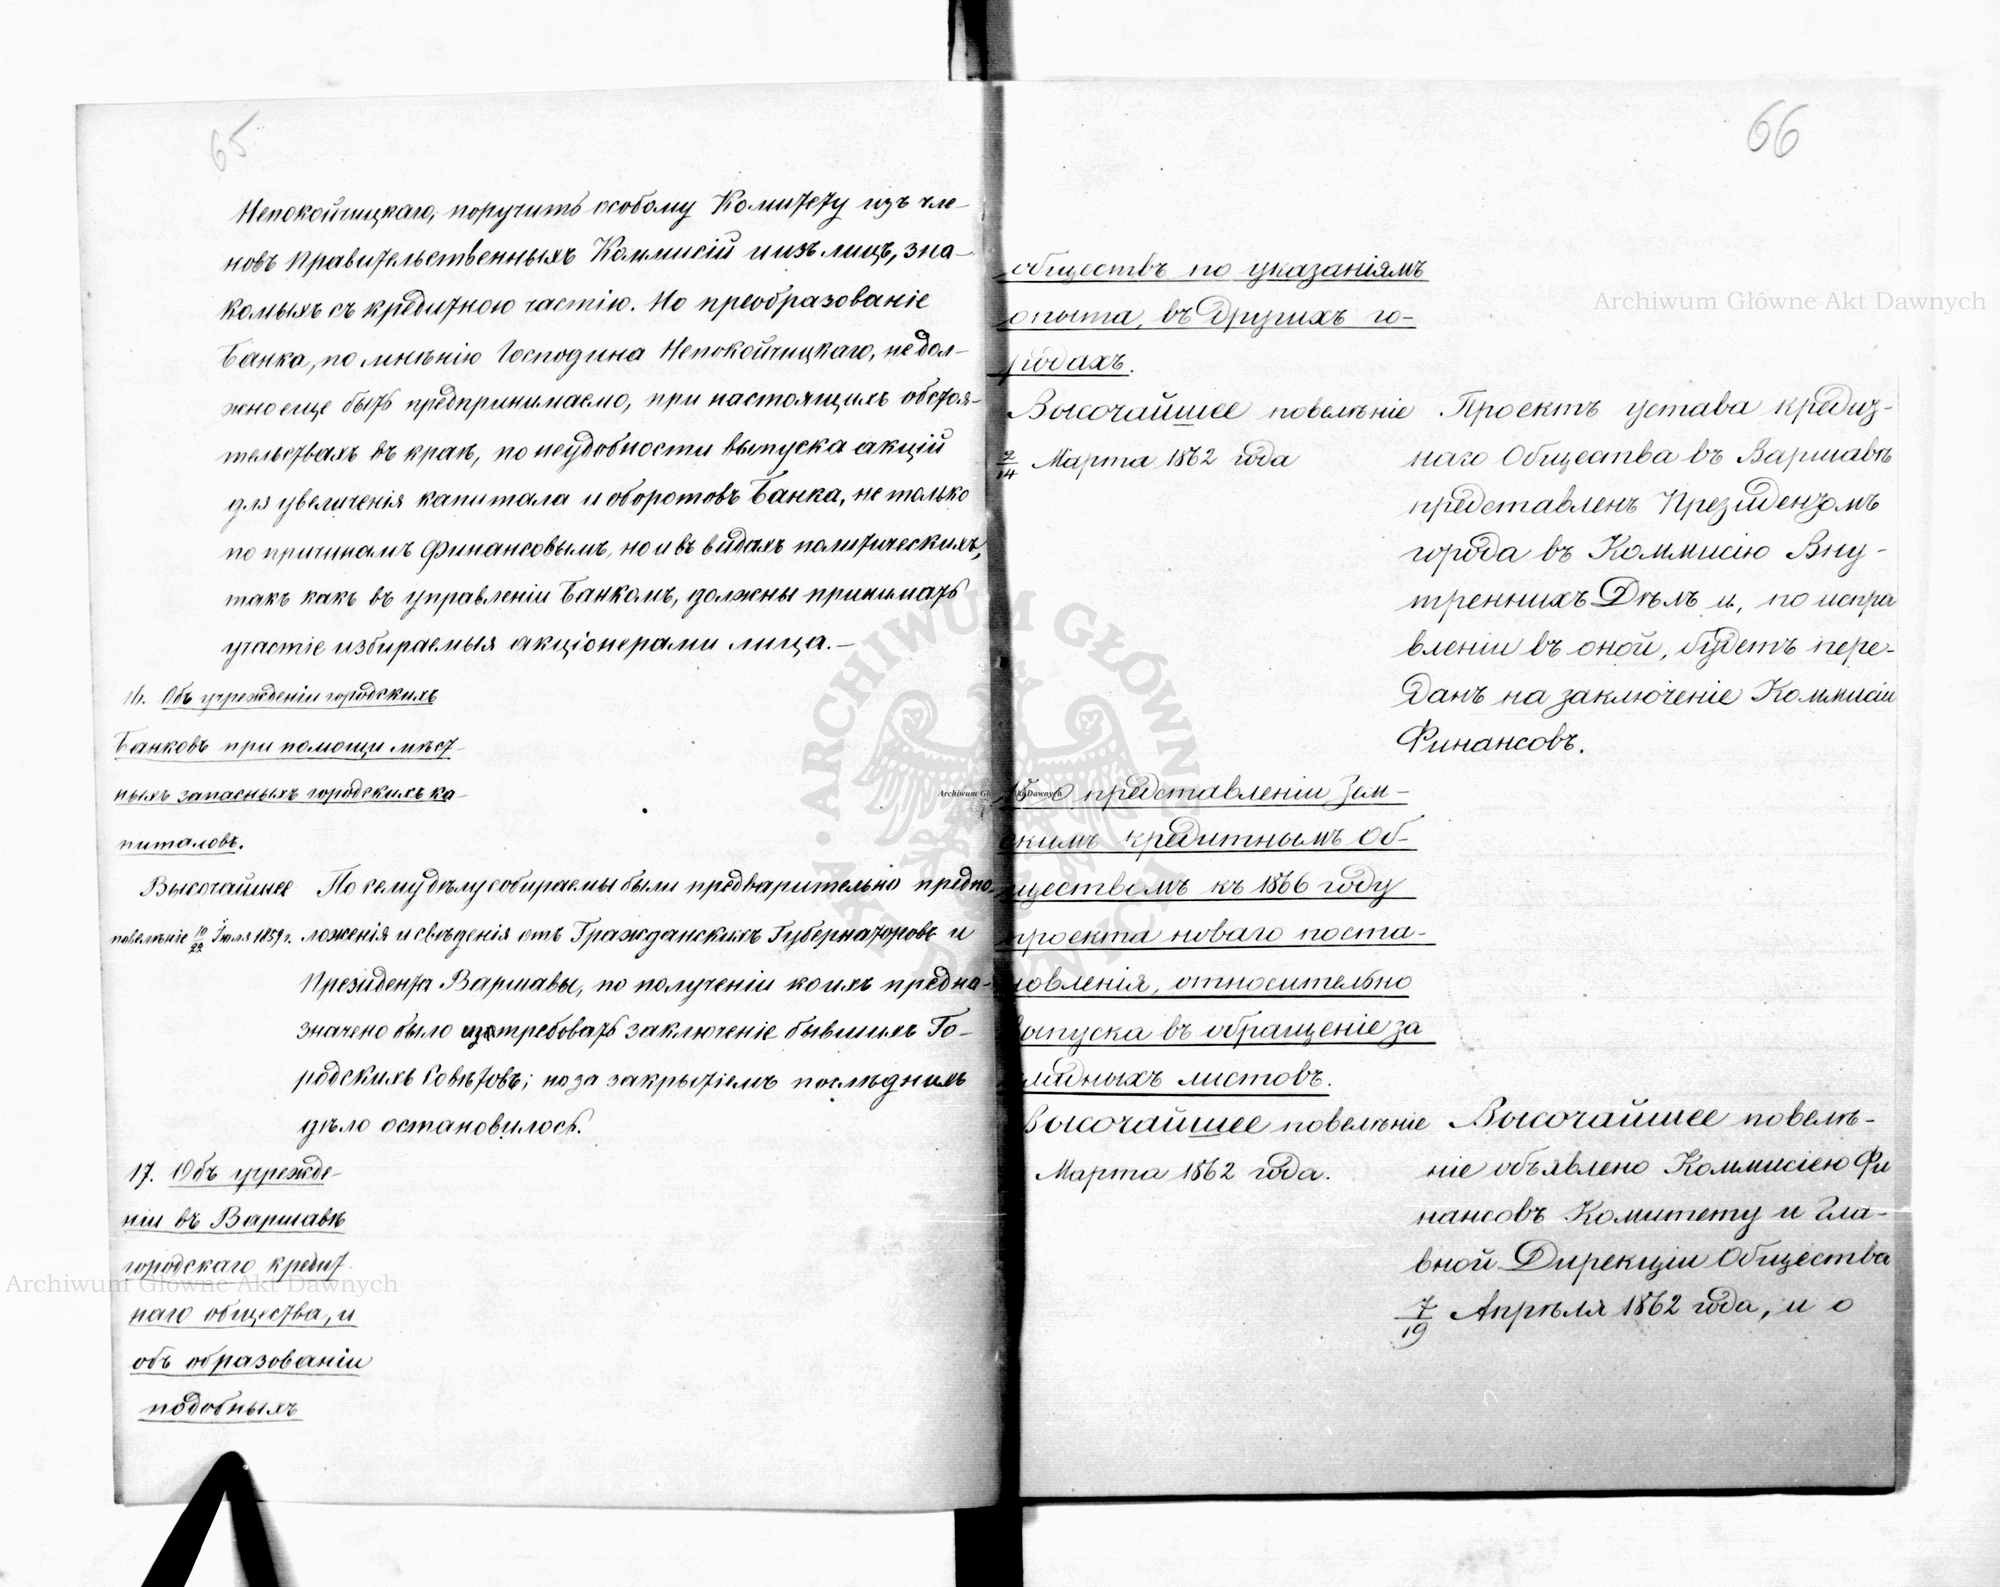 65
Непокойчицкаго, поручить особому Комитету изъ чле-
новъ Правительственныхъ Коммисій и изъ лицъ, зна-
комыхъ съ кредитною частію. Но преобразованіе
Банка, по мнѣнію Господина Непокойчицкаго, не дол-
жно еще быть предпринимаемо, при настоящихъ обстоя-
тельствахъ въ краѣ, по неудобности выпуска акцій
для увеличенія капитала и оборотовъ Банка, не только
по причинамъ финансовымъ, но и въ видахъ политическихъ,
такъ какъ въ управленіи Банкомъ, должны принимать
участіе избираемыя акціонерами лица.—
16. Объ учрежденіи городскихъ
Банковъ при помощи мѣст-
ныхъ запасныхъ городскихъ ка-
питаловъ.
Высочайшее
повелѣніе 10/22 Іюля 1859 г.
По сему дѣлу собираемы были предварительно предпо-
ложенія и свѣденія отъ Гражданскихъ Губернаторовъ и
Президента Варшавы, по полученіи коихъ предна-
значено было истребовать заключеніе бывшихъ Го-
родскихъ Совѣтовъ; но за закрытіемъ послѣднихъ
дѣло остановилось.
17. Объ учрежде-
ніи въ Варшавѣ
городскаго кредит-
наго общества, и
объ образованіи
подобныхъ
66
обществъ по указаніямъ
опыта, въ другихъ го-
родахъ.
Высочайшее повелѣніе
2/14 Марта 1862 года
Проектъ устава кредит-
наго Общества въ Варшавѣ
представленъ Президентомъ
города въ Коммисію Вну-
треннихъ Дѣлъ и, по испра
вленіи въ оной, будетъ пере-
данъ на заключеніе Коммисіи
Финансовъ.
О представленіи Зем-
скимъ кредитнымъ Об-
ществомъ къ 1866 году
проекта новаго поста-
новленія, относительно
выпуска въ обращеніе за
кладныхъ листовъ.
Высочайшее повелѣніе
Марта 1862 года.
Высочайшее повелѣ-
ніе объявлено Коммисіею Фи
нансовъ Комитету и Гла-
вной Дирекціи Общества
7/19 Апрѣля 1862 года, и о
Archiwum Główne Akt Dawnych
Archiwum Główne Akt Dawnych
Archiwum Główne Akt Dawnych
ARCHIWUM GŁÓWNE AKT DAWNYCH